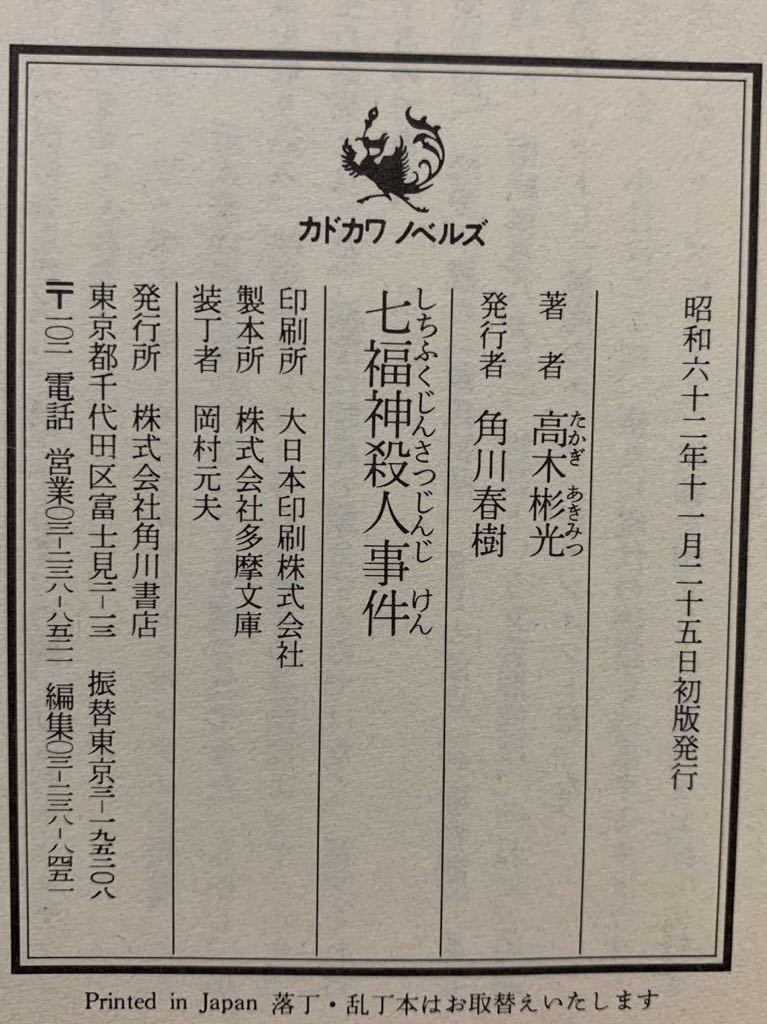 カドカワ ノベルズ
昭和六十二年十一月二十五日初版発行
著 者 高木彬光
たかぎ あきみつ
発行者 角川春樹
七福神殺人事件
しちふくじんさつじんじ けん
印刷所 大日本印刷株式会社
製本所 株式会社多摩文庫
装丁者 岡村元夫
発行所 株式会社角川書店
東京都千代田区富士見二–一三 振替東京三–一九五二〇八
〒一〇二 電話 営業〇三–二三八–八五二一 編集〇三–二三八–八四五一
Printed in Japan 落丁・乱丁本はお取替えいたします